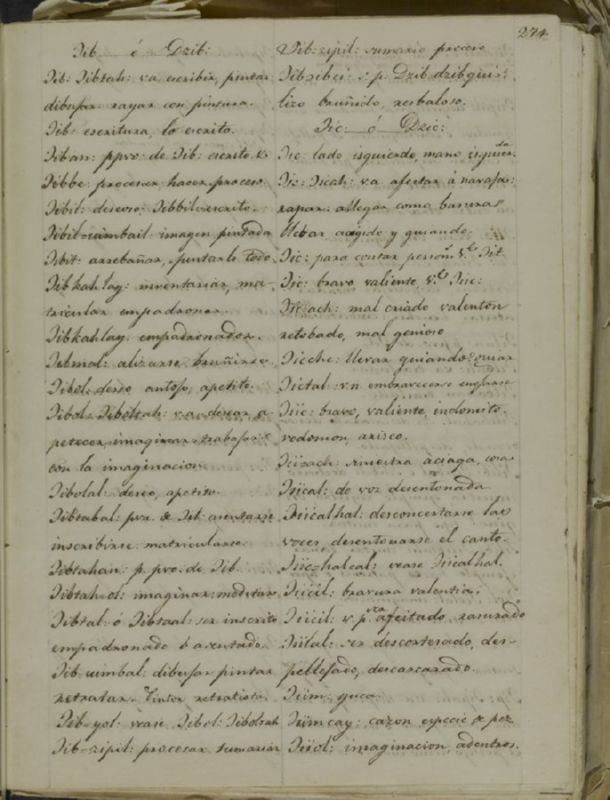 274
Jib ó Dzib:
Jib: Jibtah: va escribir, pintar
dibujar rayar con pintura.
Jib: escritura, lo escrito.
Jiban: ppro. de Jib. escrito
Jibbe: procesar hacer proceso
Jibil: deseoso: Jibbil escrito.
Jibil-uimbail: imagen pintada
Jibit: arrebañar, juntarlo todo
Jibkahlay: inventariar, ma-
tricular empadronar.
Jibkahlay: empadronador.
Jibmal: alizarse bruñirse
Jibol deseo antojo, apetito.
Jibol: Jiboltah: va desear, a-
petecer, imaginar, trabajar
con la imaginacion
Jibolal: deseo, apetito
Jibtabal: pva. de Jib asentarse
inscribirse matricularse.
Jibtahan: p. pro. de Jib.
Jibtah-ol: imaginar meditar
Jibtal ó Jibtaal: ser inscrito
empadronado ó asentado.
Jib uimbal: dibujar pintar
retratar. Pintor retratista
Jib-yol: vease Jibol: Jiboltah
Jib-zipil: procesar sumariar
Jib-zipil: sumario proceso
Jibjibci: s. p. Dzib dzibqui:
lizo bruñido, resbaloso.
Jic ó Dzic:
Jic lado isquierdo, mano isquierda
Jic: Jicah: va afeitar á navaja:
rapar: allegar como basuras
Llevar acogido y guiando.
Jic: para contar
Jic: bravo valiente Jiic:
mal criado valenton
retobado, mal genioso
Jicche: llevar guiando
Jictal: vn embravecerse
Jiic: bravo, valiente, indomito.
redomon, arisco.
Jiicach: siniestra aciaga, cosa
Jiical: de voz desentonada
Jiicalhal: desconcertarse las
voces desentonarse el canto.
Jiic-halcal: vease Jiicalhal.
Jiicil: bravura valentia.
Jiicil: v. p. afeitado, rasurado
Jiilal: ser descortesado, des-
pellejado, descascarado.
Jiim: yuca.
Jiimcay: cazon especie de pez
Jiiol: imaginacion adentros.